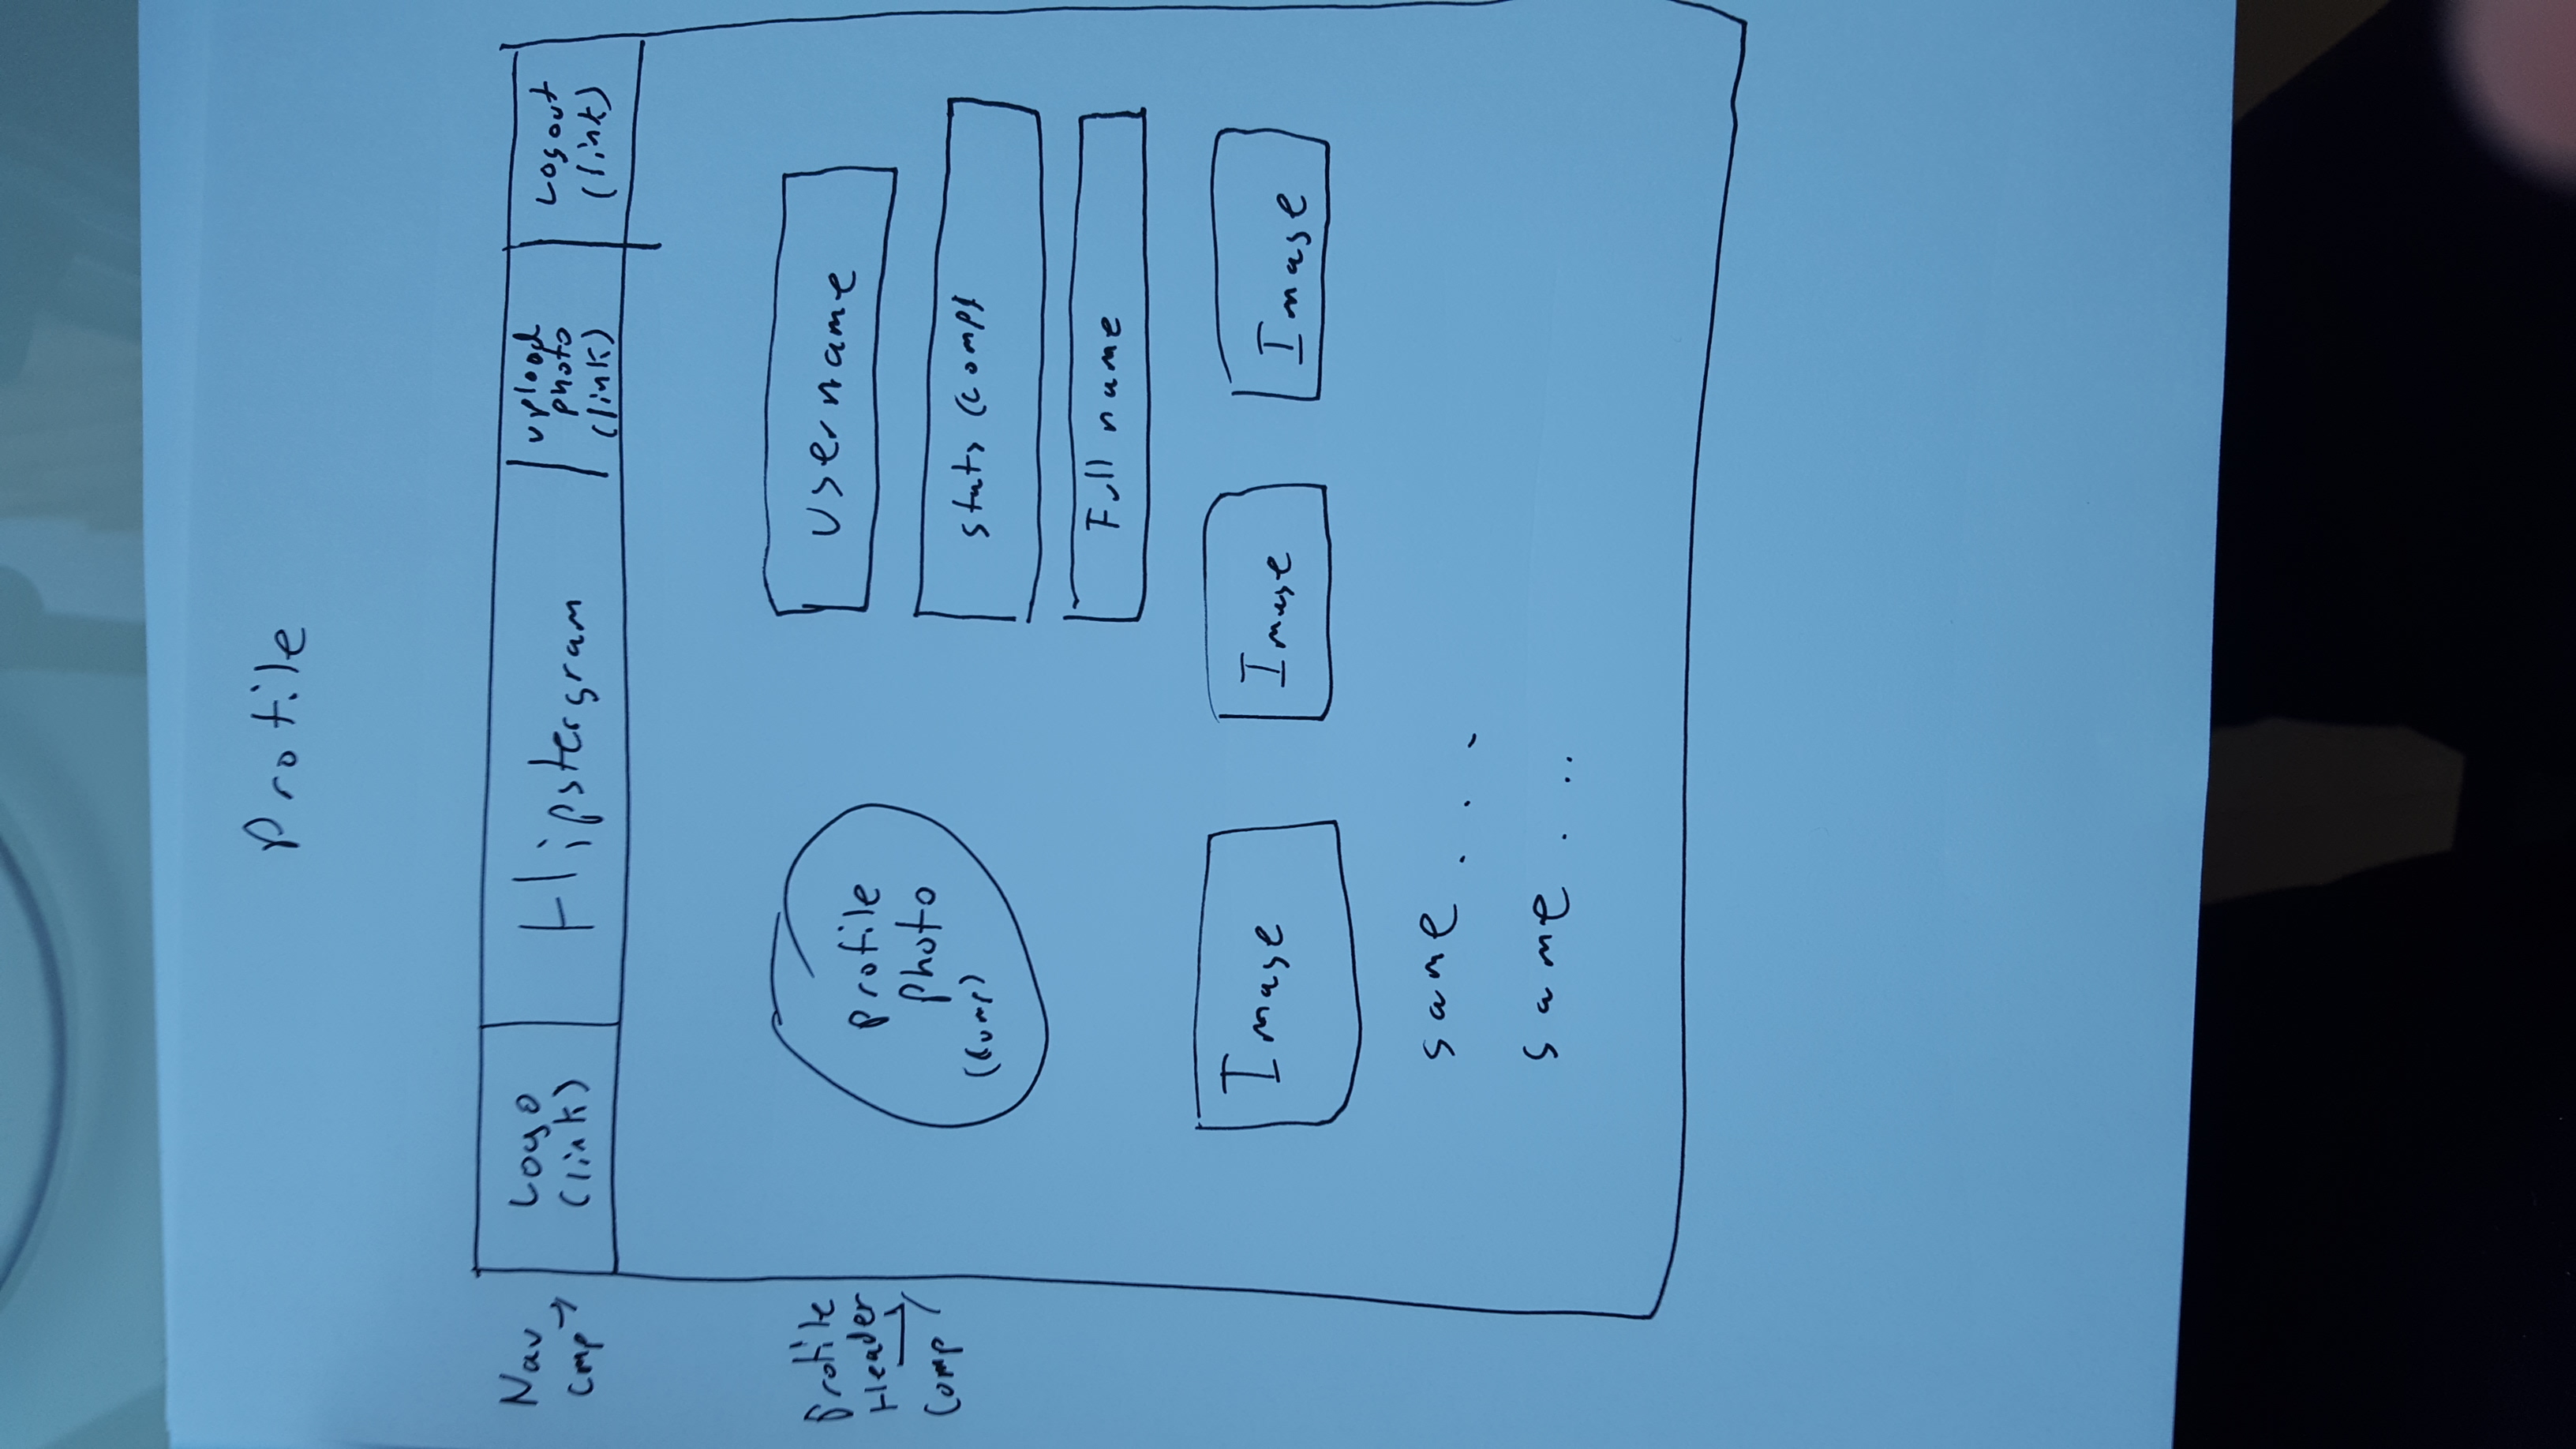 Profile
Nav
Cmp →
Logo
(link)
Hipstergram
upload
photo
(link)
Logout
(link)
Profile
Header
Comp
profile
photo
(comp)
Username
stats (comp)
Full name
Image
Image
Image
same . . .
same . . .